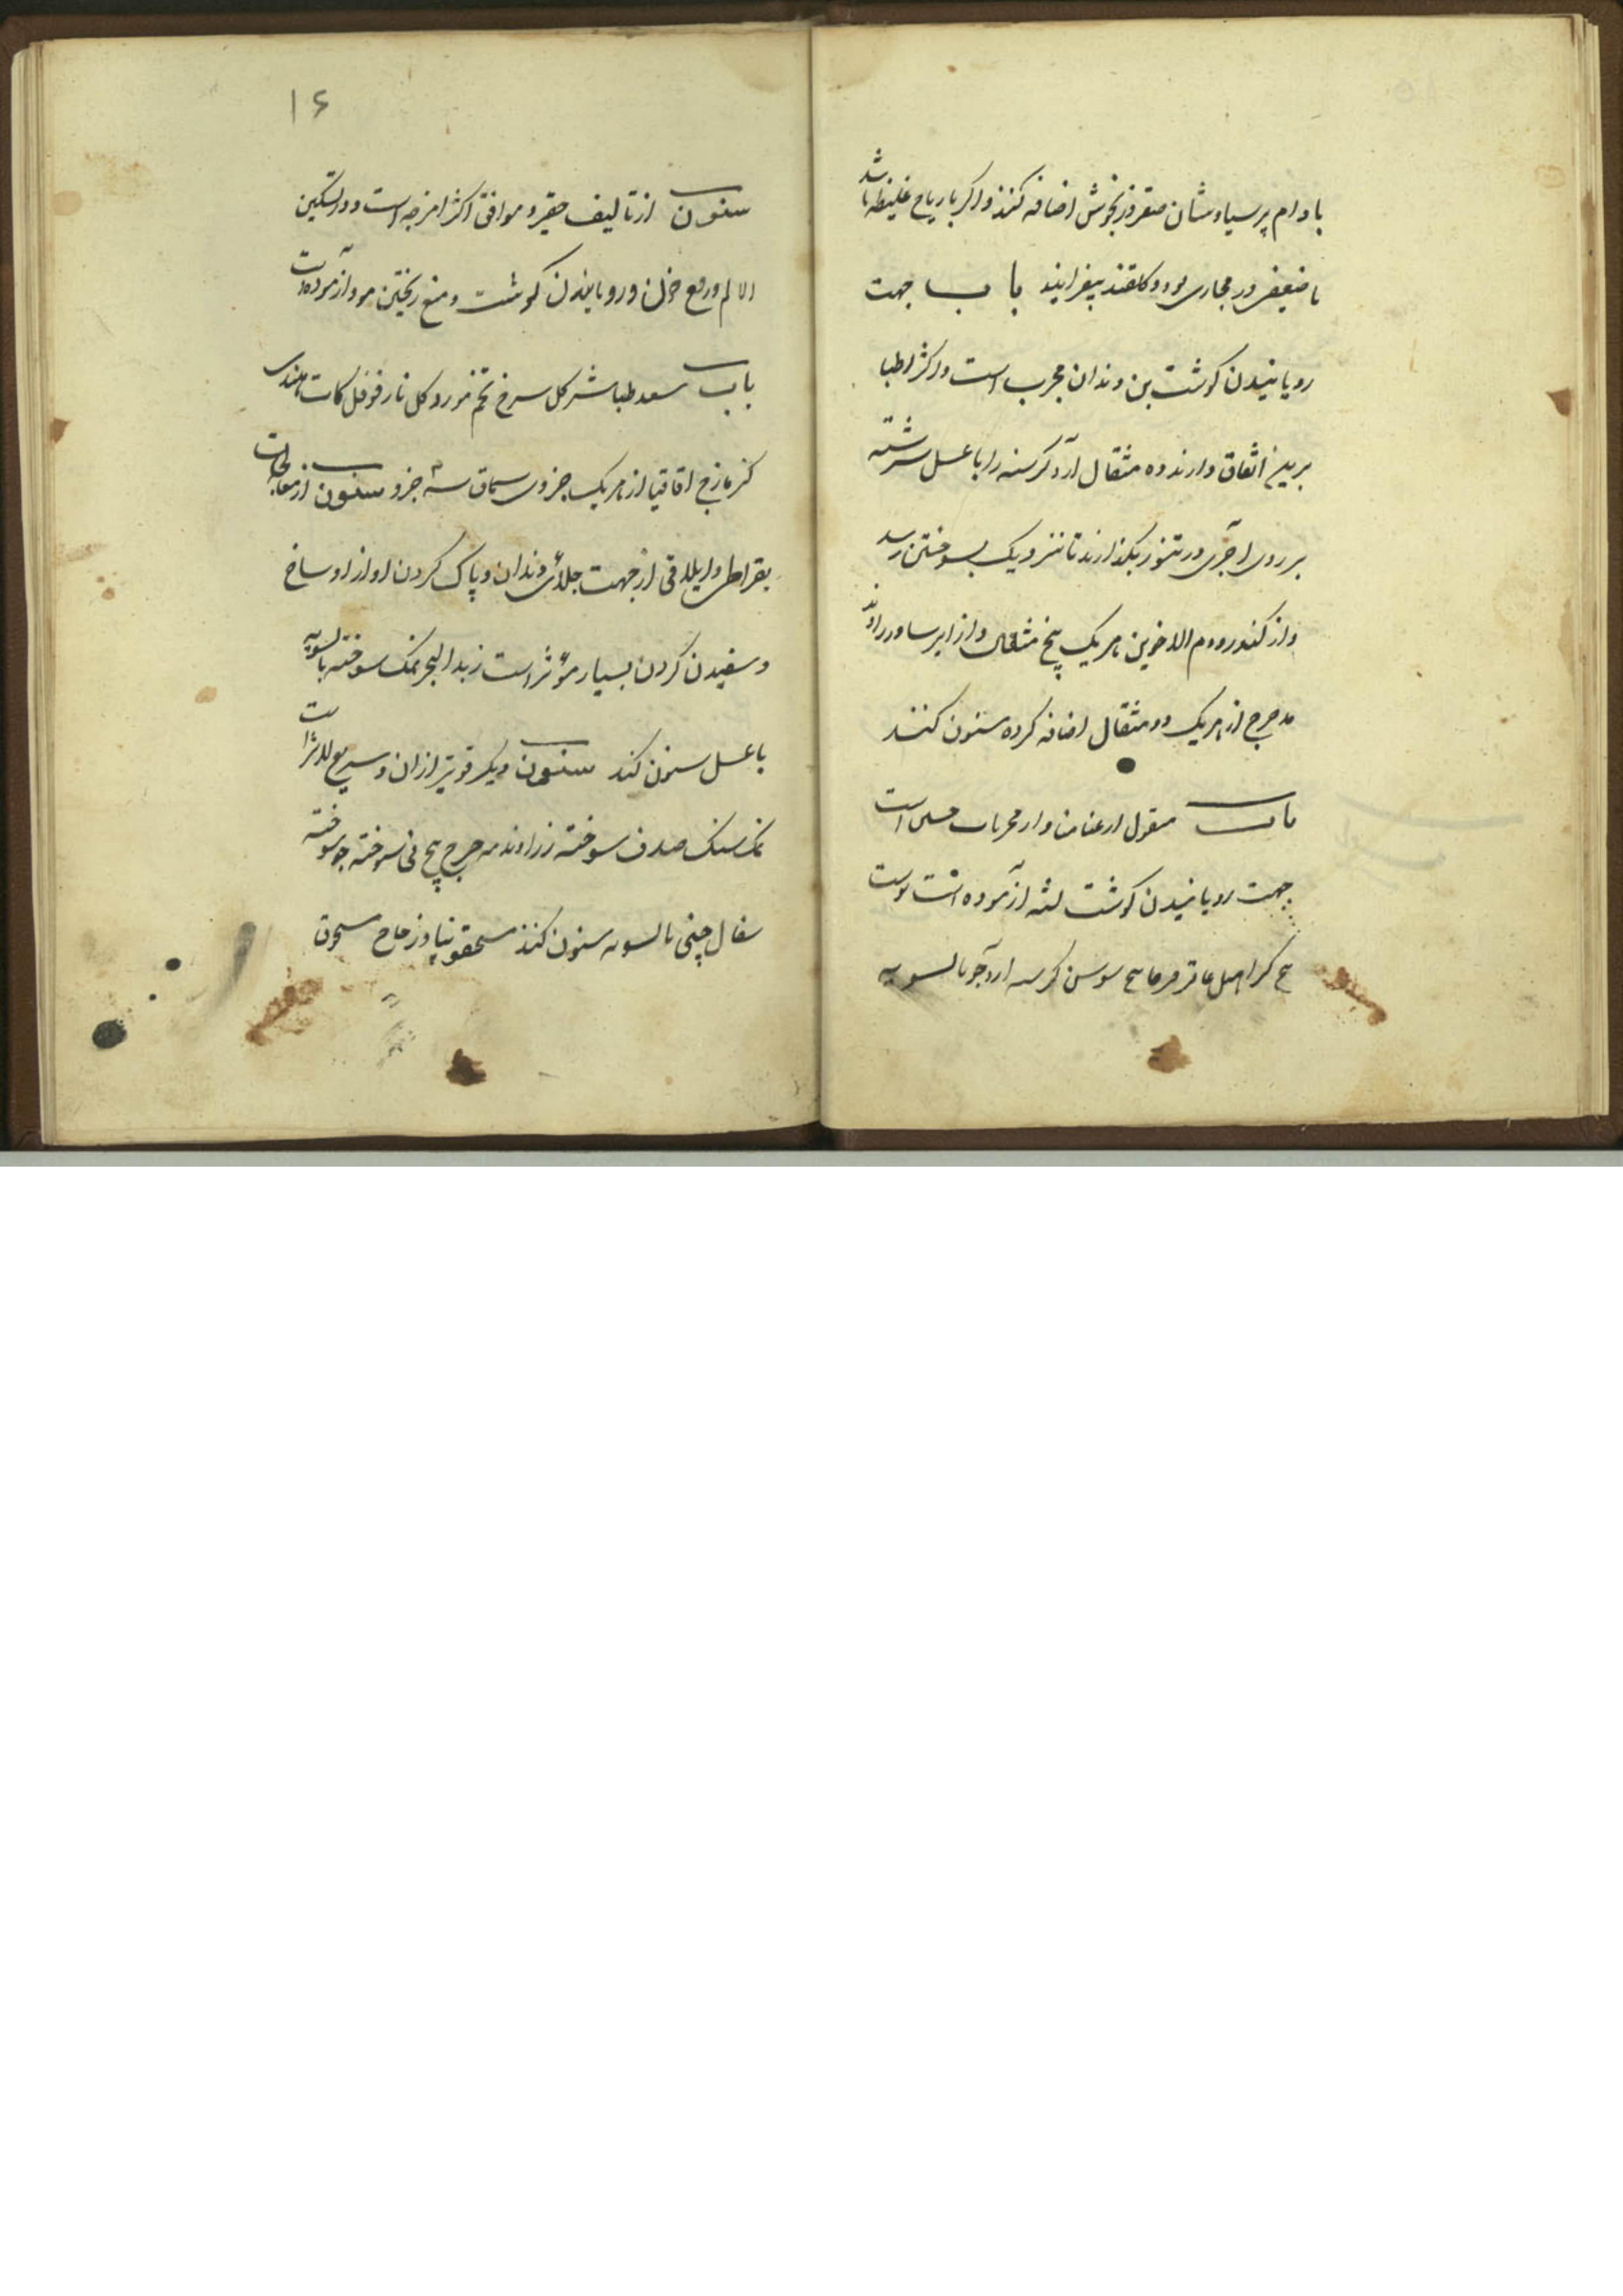 بادام پرسیاوشان صقر وزنجوش اضافه کنند واکر با ریاح غلیظه باشد
یا ضعفی در مجاری بود وکلقند بیفزایند باب جهت
رویانیدن کوشت بن دندان مجرب است واکثر اطبا
برین اتفاق دارند ده مثقال آرد کرسنه را با عسل سرشته
بر روی اجری در تنور بکذارند تا نزدیک بسوختن رسد
واز کندر ودم الاخوین هریک پنج مثقال واز ایرسا وزراوند
مدحرج از هریک دو مثقال اضافه کرده سنون کنند
باب منقول از غنا منا واز مجربات است
جهت رویانیدن کوشت لثه آزموده است پوست
بیخ کبر اصل عاقرقرحا بیخ سوسن کرسنه ارد جو بالسویه
۱۶
سنون از تالیف حقیر و موافق اکثر امزجه است ودر تسکین
الالم ورفع خون ورویانیدن کوشت ومنع ریختن مواد آزموده است
باب سعد طباشیر کل سرخ تخم مورد کل نار فوفل کات هندی
کزمازج اقاقیا از هریک جزوی سماق سه جزو سنون از معالجات
بقراطی وایلاقی از جهت جلای دندان و پاک کردن او از اوساخ
وسفیدن کردن بسیار مؤثر است زبد البحر نمک سوخته بالسویه
با عسل سنون کند سنون دیکر قویتر ازان وسریع الاثر است
نمک سنک صدف سوخته زراوند مدحرج بیخ نی سوخته جو سوخته
سفال چینی بالسویه سنون کنند مسحقونیا وزجاج مسحون